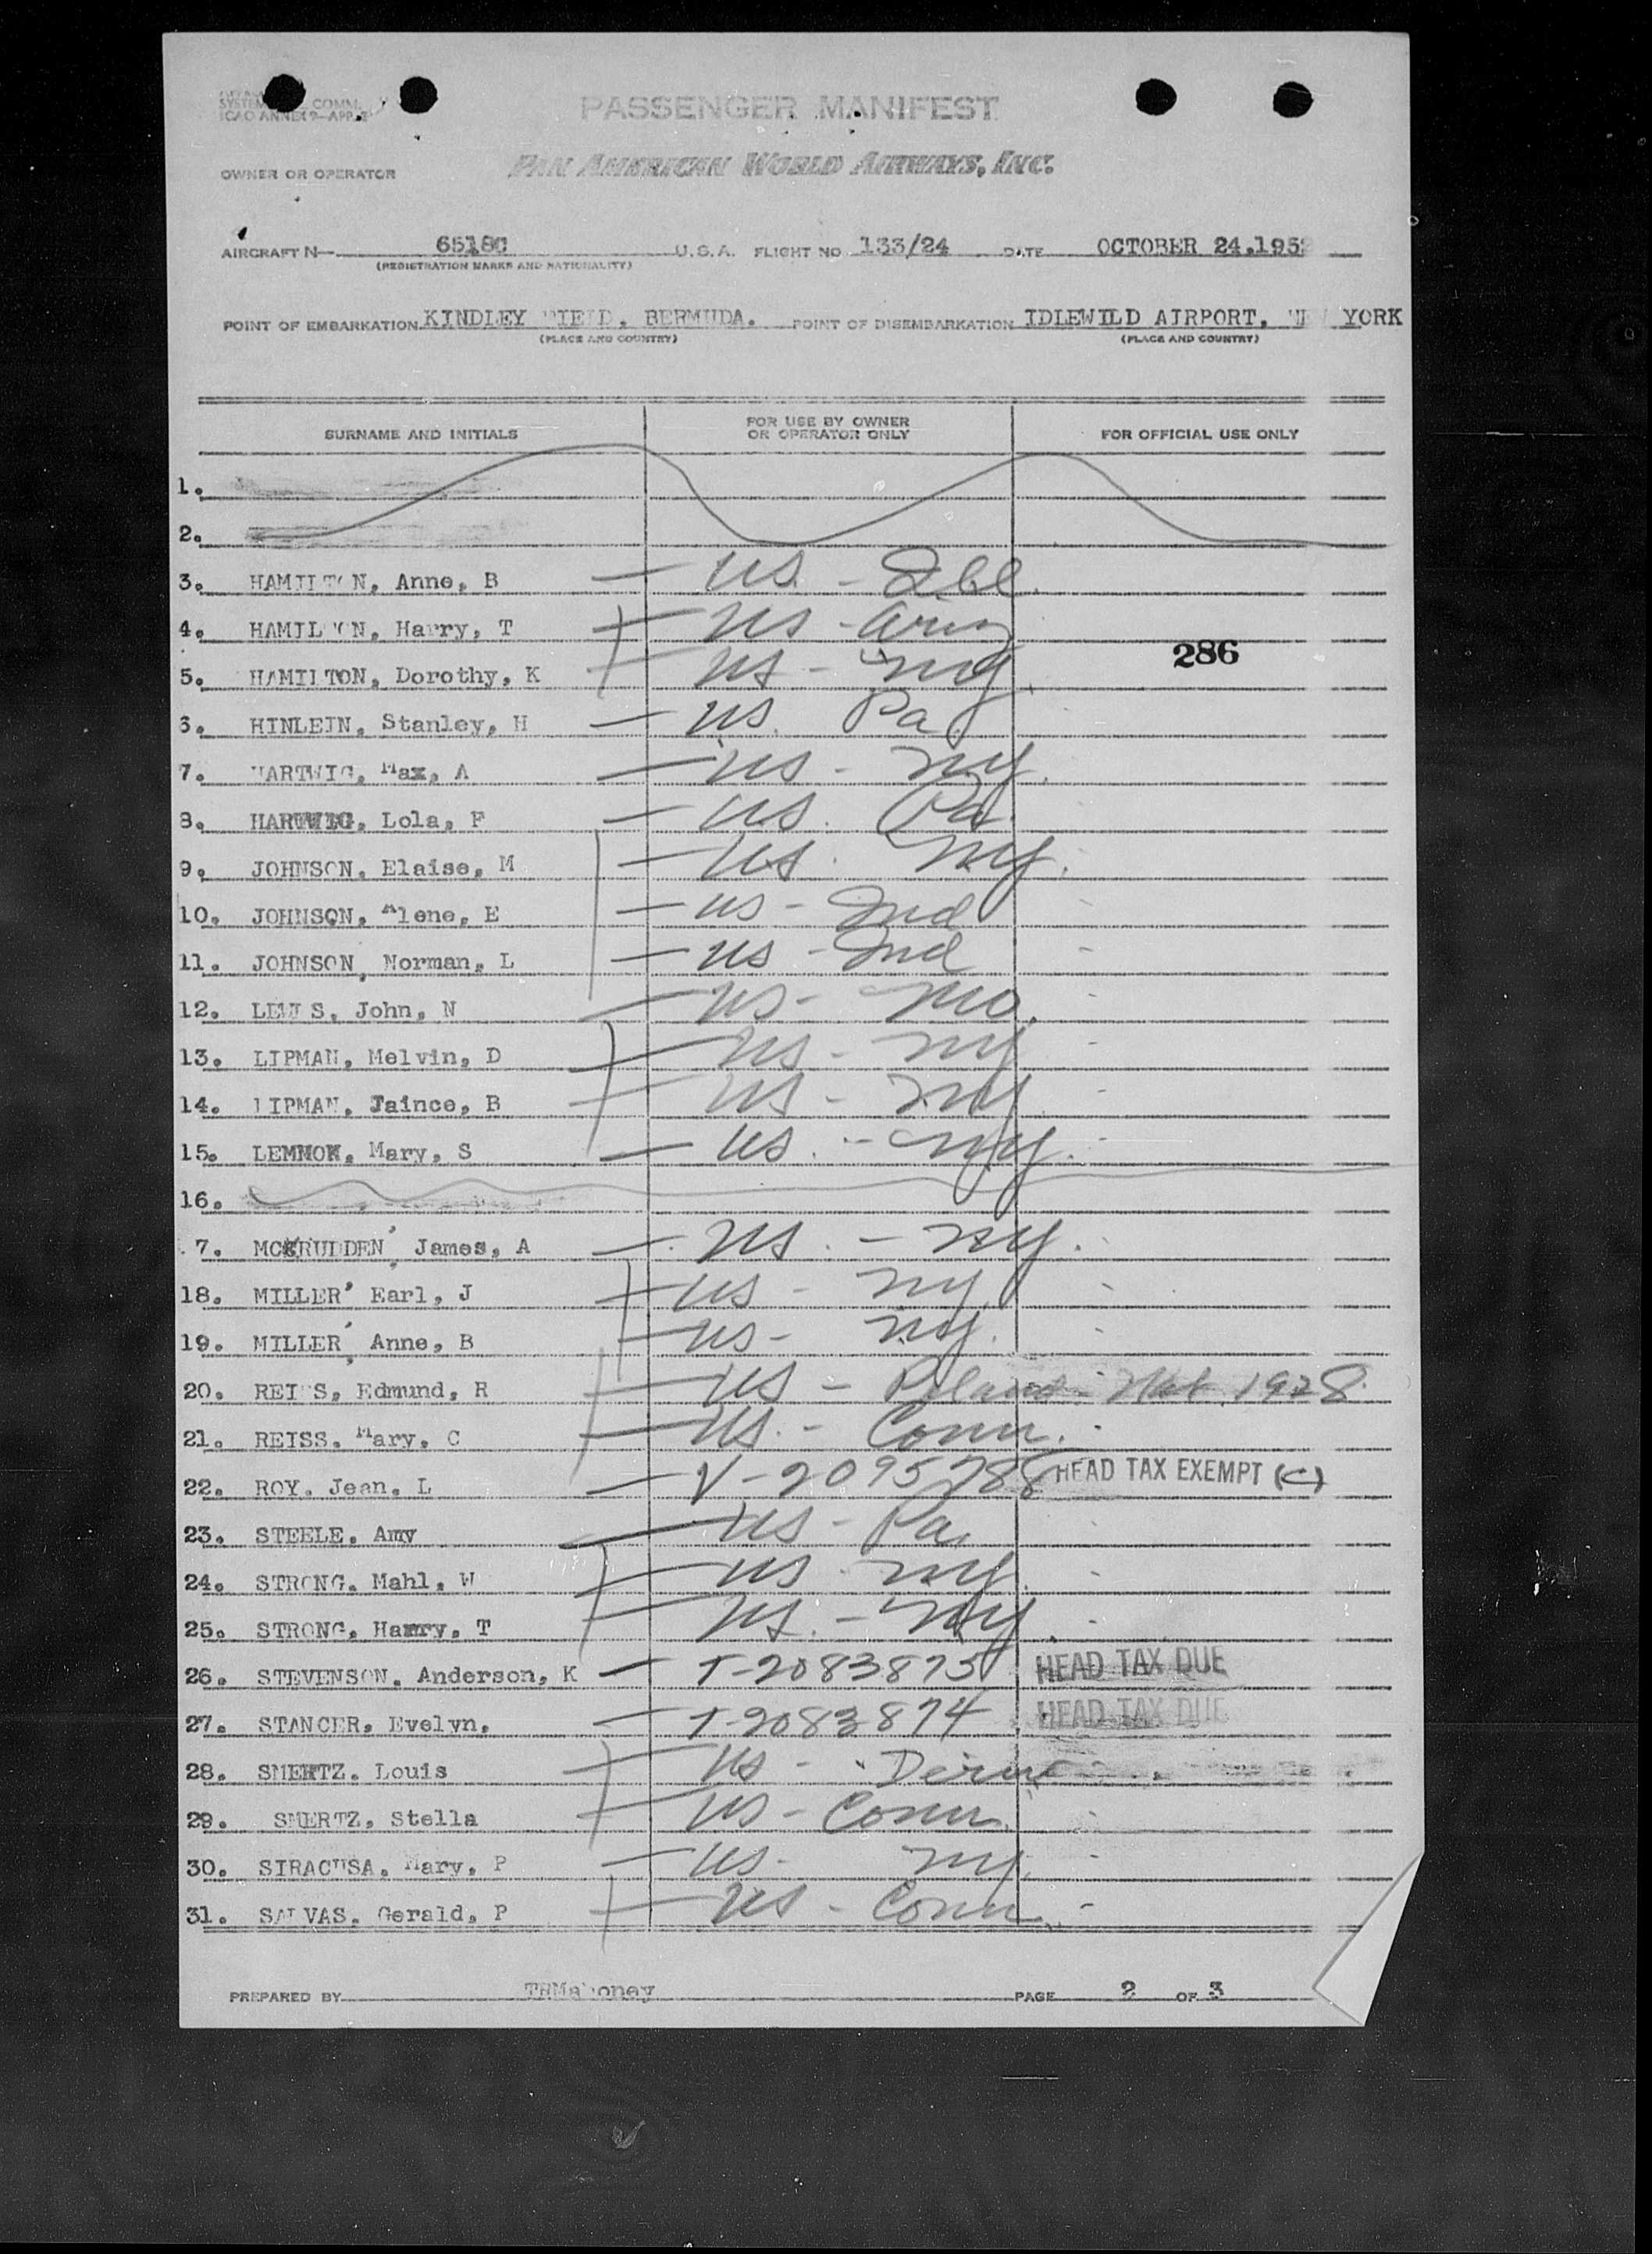 SYSTEM COMM.
ICAO ANNEX 9—APP.
PASSENGER MANIFEST
OWNER OR OPERATOR PAN AMERICAN WORLD AIRWAYS, INC.
AIRCRAFT N— 6518C U.S.A. FLIGHT NO 133/24 DATE OCTOBER 24,195
(REGISTRATION MARKS AND NATIONALITY)
POINT OF EMBARKATION KINDLEY FIELD, BERMUDA. POINT OF DISEMBARKATION IDLEWILD AIRPORT, NEW YORK
(PLACE AND COUNTRY) (PLACE AND COUNTRY)
SURNAME AND INITIALS FOR USE BY OWNER OR OPERATOR ONLY FOR OFFICIAL USE ONLY
1.
2.
3. HAMILTON, Anne, B — US - Ill.
4. HAMILTON, Harry, T — US - Ariz
286
5. HAMILTON, Dorothy, K — US - NY
6. HINLEIN, Stanley, H — US. Pa
7. HARTWIG, Max, A — US - NY.
8. HARTWIG, Lola, F — US. Pa.
9. JOHNSON, Elaise, M — US. NY.
10. JOHNSON, Alene, E — US - Ind
11. JOHNSON, Norman, L — US - Ind
12. LEWIS, John, N — US - Mo.
13. LIPMAN, Melvin, D — US - NY
14. LIPMAN, Jaince, B — US - NY
15. LEMMON, Mary, S — US. - NY.
16.
7. MCCRUDDEN, James, A — US. - NY.
18. MILLER, Earl, J — US - NY
19. MILLER, Anne, B — US - NY.
20. REISS, Edmund, R — US - Poland - Nat. 1928.
21. REISS, Mary, C — US. - Conn.
22. ROY, Jean, L — V-2095788 HEAD TAX EXEMPT (C)
23. STEELE, Amy — US - Pa.
24. STRONG, Mahl, W — US. NY.
25. STRONG, Harry, T — US. - NY
26. STEVENSON, Anderson, K — T-2083875 HEAD TAX DUE
27. STANCER, Evelyn, — T-2083874 HEAD TAX DUE
28. SMERTZ, Louis — US -
29. SMERTZ, Stella — US - Conn.
30. SIRACUSA, Mary, P — US - NY.
31. SALVAS, Gerald, P — US - Conn.
PREPARED BY THMahoney PAGE 2 OF 3